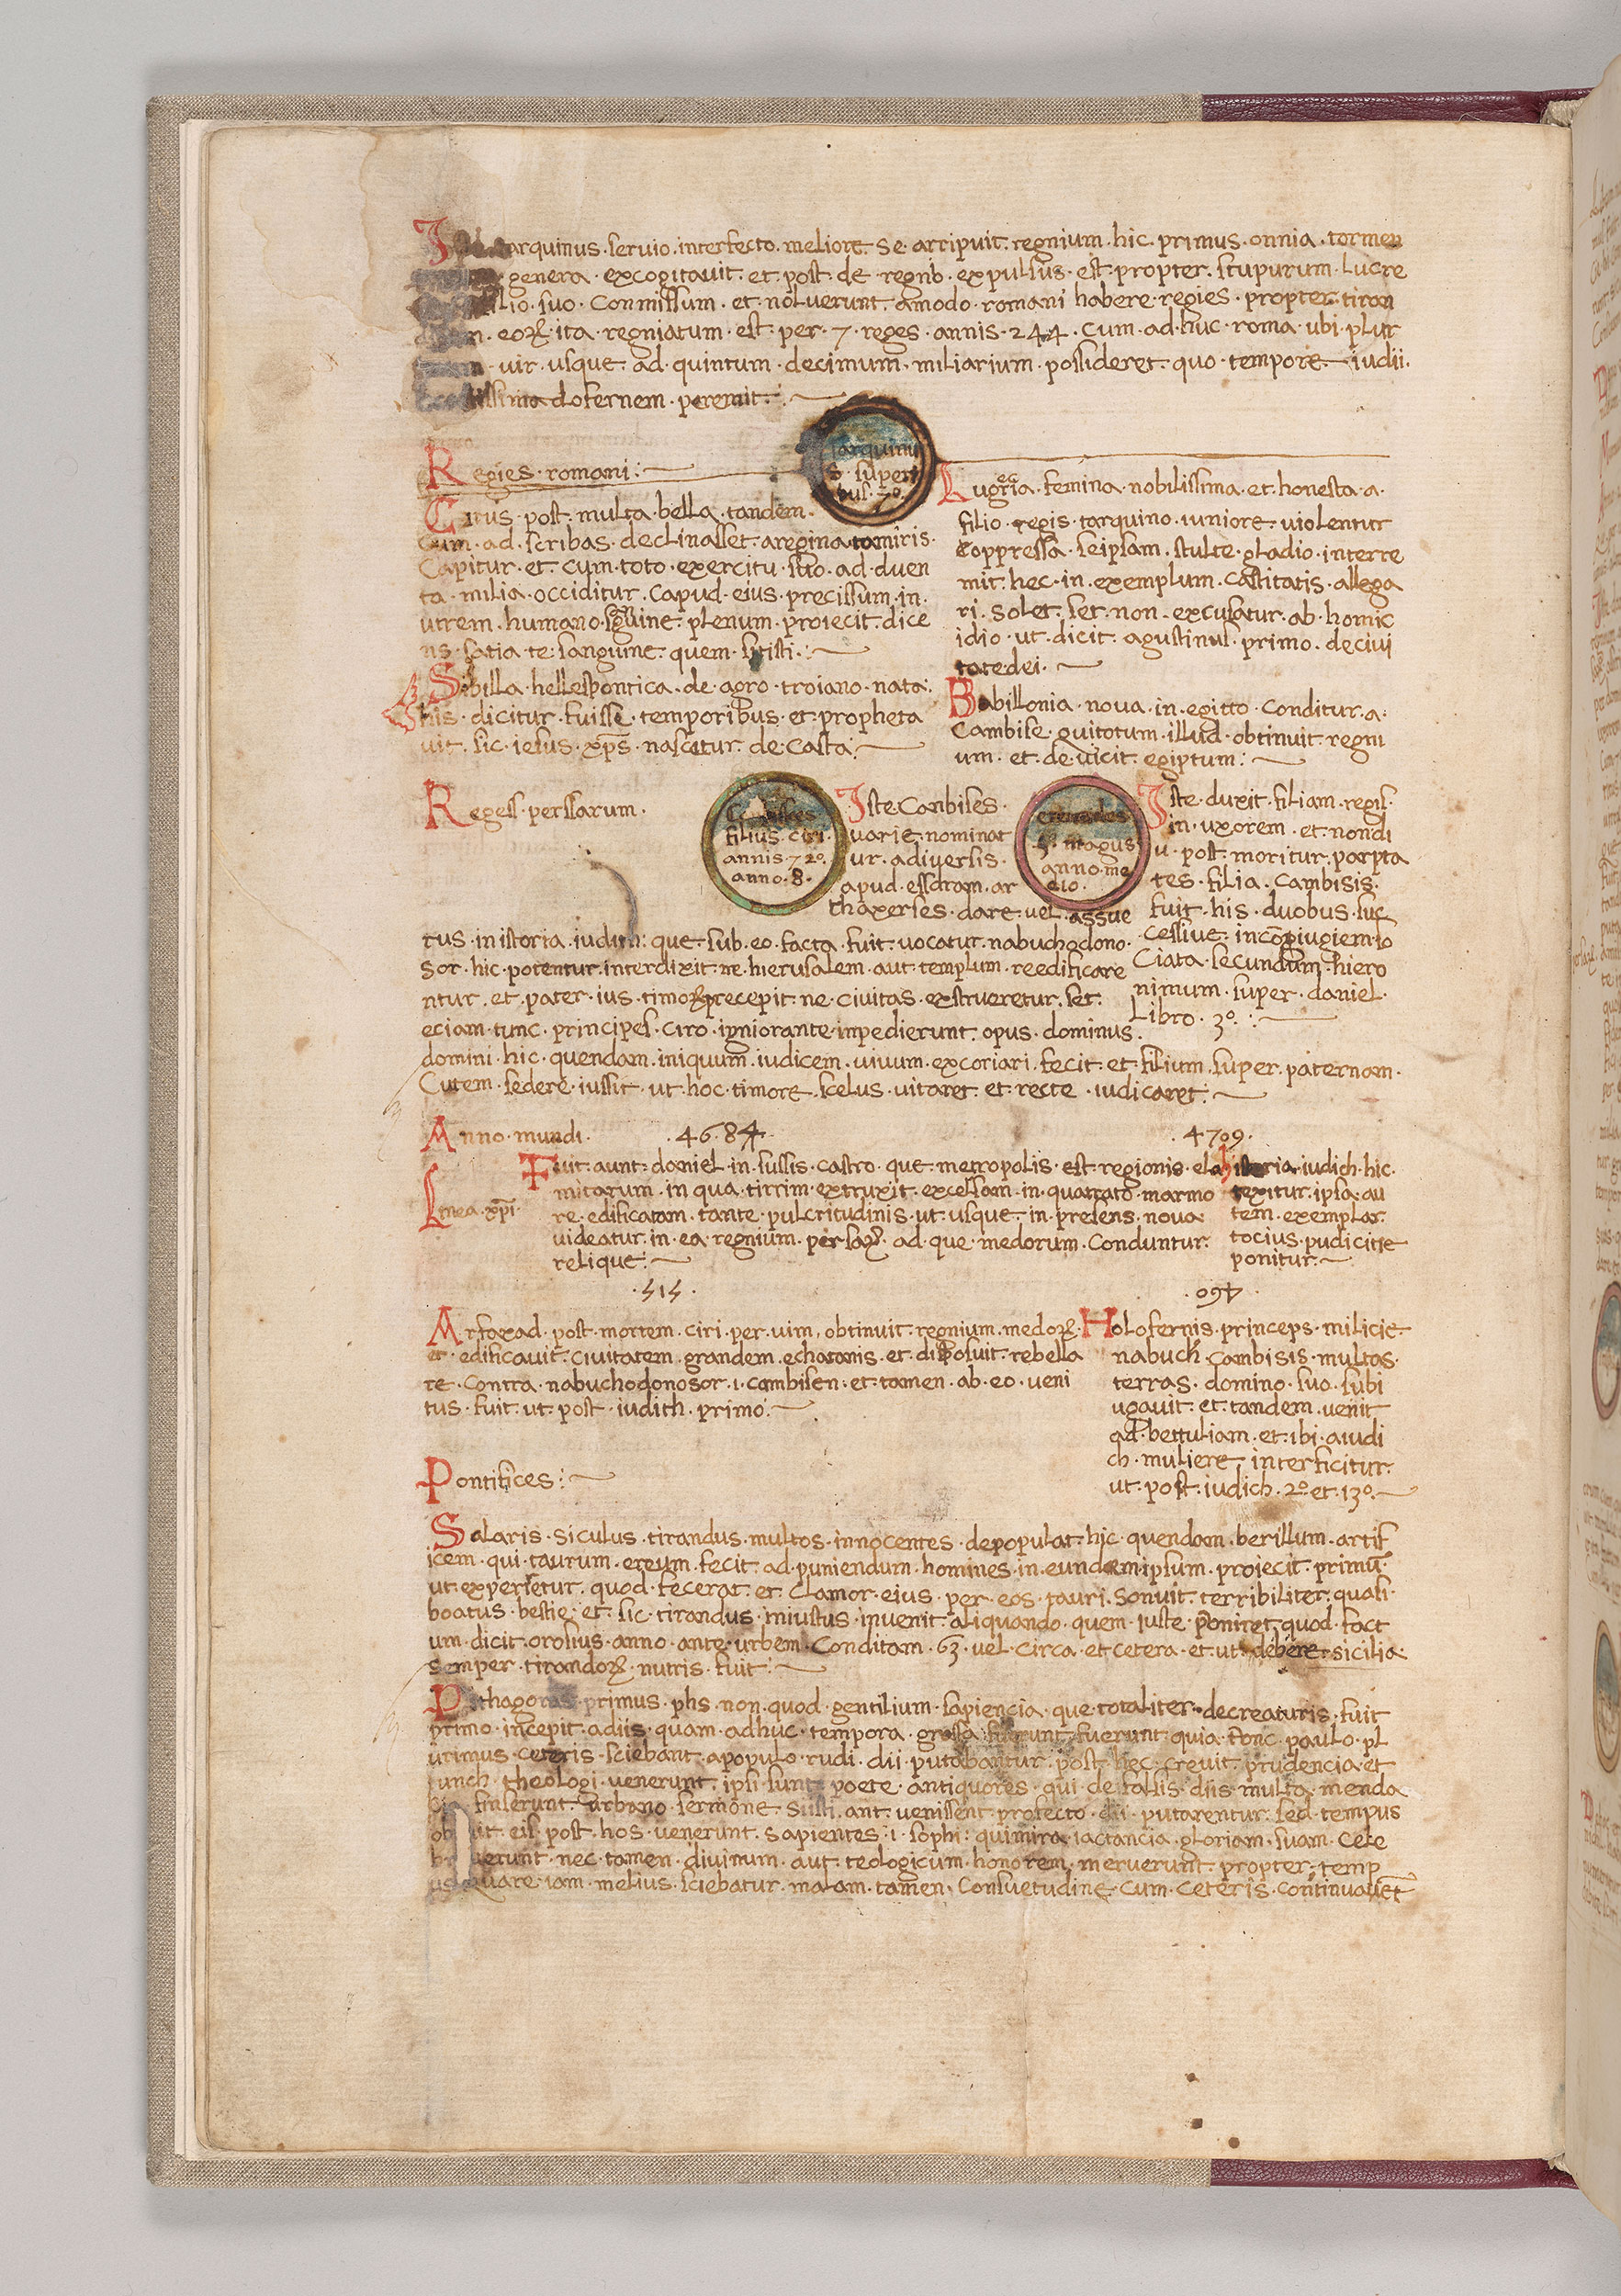 arquinus · servio · interfecto · meliore · se · arripuit · regnium · hic · primus · onnia · tormen
genera · excogitavit · et · post · de · regno · expulsus · est · propter · stupurum · lucre
lio · suo · Conmissum · et · noluerunt · amodo · romani habere · regies · propter · tiron
eoꝝ · ita · regniatum · est · per · 7 · reges · annis · 244 · Cum · ad · huc · roma · ubi · plur
vir · usque · ad · quintum · decimum · miliarium · possideret · quo · tempore · iudii ·
dofernem · peremit :
Regies · romani :
tarquinu
s · super
bus · 7º ·
Cirus · post · multa · bella · tandem ·
Cum · ad · scribas · declinasset · aregina tamiris ·
Capitur · et · cum · toto · exercitu · suo · ad · duen
ta · milia · occiditur · Capud · eius · precissum · in ·
utrem · humano · sguine · plenum · proiecit · dice
ns · satia · te · sanguine · quem · sitisti :
Sibilla · hellespontica · de · agro · troiano · nata :
his · dicitur · fuisse · temporibus · et · propheta
vit · sic · iesus · xp̄s · nascetur · de · Casta :
Lugretia · femina · nobilissima · et · honesta · a ·
filio · regis · tarquino · iuniore · violentur
Coppressa · seipsam · stulte · gladio · interre
mit · hec · in · exemplum · Castitatis · allega
ri · solet · set · non · excusatur · ab · homic
idio · ut · dicit · agustinus · primo · decivi
tate · dei ·
Babillonia · nova · in · egitto · Conditur · a ·
Cambise · quitotum · illud · obtinuit · regni
um · et · de · vicit · egiptum :
Reges · perssarum ·
filius · ciri ·
annis · 7 2º ·
anno · 8 ·
Iste · Canbises ·
varie · nominat
ur · adiversis ·
apud · essdram · ar
thaxerses · dare · vel · assue
magus
anno · me
dio ·
Iste · duxit · filiam · regis ·
in · uxorem · et · nondi
u · post · moritur · parpta
tes · filia · Cambisis ·
fuit · his · duobus · suc
cessive · incōgiugiem · so
Ciata · secundum · hiero
nimum · super · daniel ·
Libro · 3º :
rus · inistoria · iudith : que · sub · eo · facta · fuit · vocatur · nabuchodono ·
sor · hic · potentur · interdixit · ne · hierusalem · aut · templum · reedificare
ntur · et · pater · ius · timoꝝ precepit · ne · civitas · exstrueretur · set ·
eciam · tunc · principes · ciro · igniorante · inpedierunt · opus · dominus ·
domini · hic · quendam · iniquum · iudicem · vivum · excoriari · fecit · et · filium · super · paternam ·
Cutem · sedere · iussit · ut · hoc · timore · scelus · vitaret · et · recte · iudicaret :
Anno · mundi · · 4684 · · 4709 ·
Linea · xp̄i ·
Fuit · aunt · daniel · in · sussis · castro · que · metropolis · est · regionis · ela
mitarum · in qua · tirrim · extruxit · excelsam · in · quatrato · marmo
re · edificatam · tante · pulcritudinis · ut · usque · in · presens · nova ·
videatur · in · ea · regnium · persaꝝ · ad · que · medorum · Conduntur ·
relique :
historia · iudich · hic ·
texitur · ipsa · au
tem · exemplar ·
tocius · pudicitie
ponitur :
· 515 · · 490 ·
Arfaxad · post · mortem · ciri · per · vim · obtinuit · regnium · medoꝝ ·
et · edificavit · Civitatem · grandem · echatanis · et · disposuit · rebella
re · Contra · nabuchodonosor · i · cambisen · et · tamen · ab · eo · veni
tus · fuit · ut · post · iudith · primo :
Holofernis · princeps · milicie ·
nabuch · Cambisis · multas ·
terras · domino · suo · subi
ugavit · et · tandem · venit
ad · bettuliam · et · ibi · aiudi
ch · muliere · interficitur ·
ut · post · iudich · 2º · et · 13º ·
Pontifices :
Salaris · siculus · tirandus · multos · innocentes · depopulat · hic · quendam · berillum · artif
icem · qui · taurum · ereum · fecit · ad · puniendum · homines · in · eundem · ipsum · proiecit · primū
ut · experiretur · quod · fecerat · et · Clamor · eius · per · eos · tauri · sonuit · terribiliter · quasi ·
boatus · bestie · et · sic · tirandus · iniustus · invenit · aliquando · quem · iuste · poniret · quod · fact
um · dicit · orosius · anno · ante · urbem · Conditam · 63 · vel · Circa · et cetera · et · ut · debere · sicilia ·
semper · tirandoꝝ · nutris · fuit :
Pithagoras · primus · phs · non · quod · gentilium · sapiencia · que · totaliter · decreaturis · fuit
primo · incepit · adiis · quam · adhuc · tempora · grossa · fuerunt · quia · tonc · paulo · pl
urimus · ceteris · sciebant · apopulo · rudi · dii · putabantur · post · hec · crevit · prudencia · et
tunch · theologi · venerunt · ipsi · sunt · poete · antiquores · qui · de · falsis · diis · multa · menda
finserunt · urbano · sermone · sciisti · ant · venissent · profecto · dii · putarentur · sed · tempus
eis · post · hos · venerunt · sapientes · i · sophi : quimira · iactancia · gloriam · suam · Cele
nec · tamen · divinum · aut · teologicum · honorem · meruerunt · propter · temp
us · Quare · iam · melius · sciebatur · malam · tamen · Consuetudine · Cum · Ceteris · continuavēt